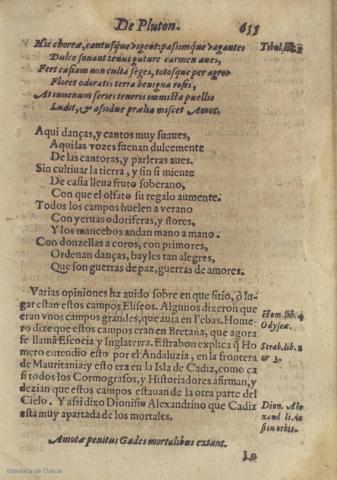 De Pluton. 653
Hic choreæ, cantusque vigent: passimque vagantes
Dulce sonant tenui guture carmen aues,
Fert casiam non culta seges, totosque per agros
Floret odoratis terra benigna rosis,
At iuuenum series teneris immista puellis
Ludit, & assidue prælia miscet Amor.
Tibul.
Aqui danças, y cantos muy suaues,
Aqui las vozes suenan dulcemente
De las cantoras, y parleras aues.
Sin cultiuar la tierra, y sin si miente
De casia llena fruto soberano,
Con que el olfato su regalo aumente.
Todos los campos huelen a verano
Con yeruas odoriferas, y flores,
Y los mancebos andan mano a mano.
Con donzellas a coros, con primores,
Ordenan danças, bayles tan alegres,
Que son guerras de paz, guerras de amores.
Varias opiniones ha auido sobre en que sitio, ò lu-
gar estan estos campos Eliseos. Algunos dixeron que
eran vnos campos grandes, que auia en Tebas. Home-
ro dize que estos campos eran en Bretaña, que agora
se llamã Escocia y Inglaterra. Estrabon explica q̃ Ho
mero entendio esto por el Andaluzia, en la frontera
de Mauritania: y esto era en la Isla de Cadiz, como ca
si todos los Cormografos, y Historiadores afirman, y
dezian que estos campos estauan de la otra parte del
Cielo. Y assi dixo Dionisio Alexandrino que Cadiz
esta muy apartada de los mortales.
Hom. lib. 4
Odyseæ.
Strab. lib. 1
& 3.
Dion. Ale
xand. li. de
situ orbis.
Amotæ penitus Gades mortalibus extant.
Lo
Biblioteca de Galicia